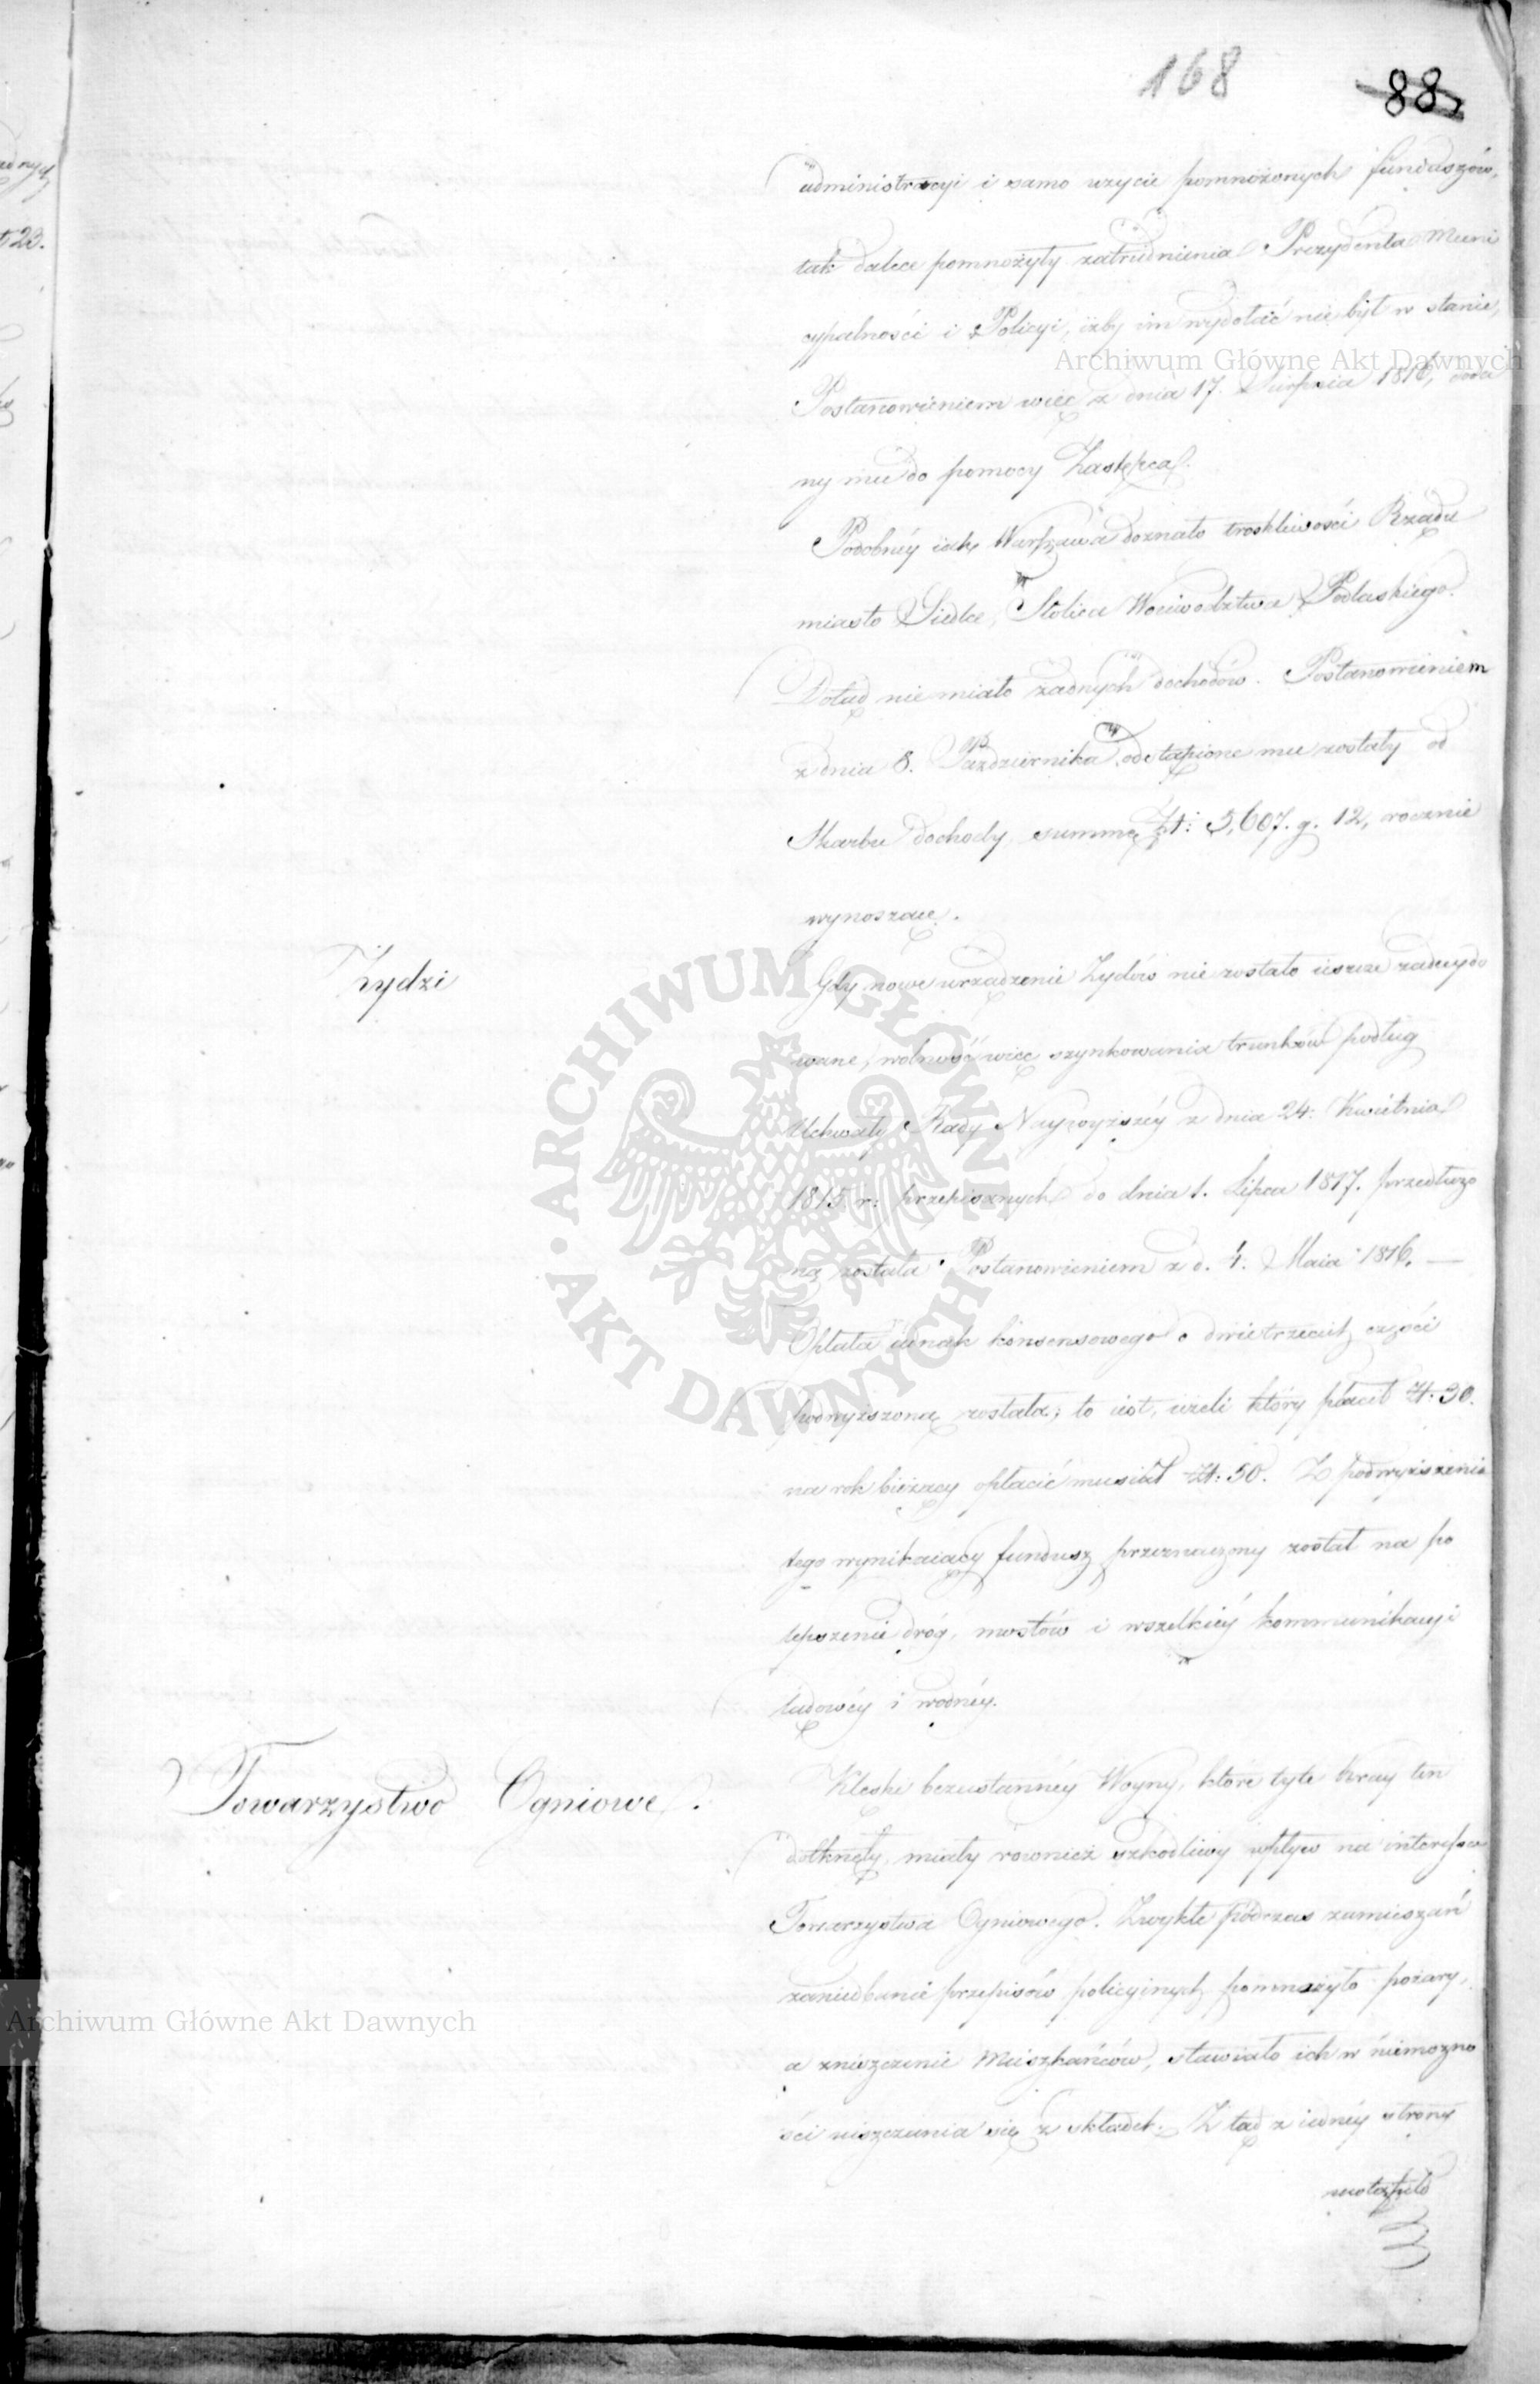 168
88.
administracyi i samo użycie pomnożonych funduszów,
tak dalece pomnożyły zatrudnienia Prezydenta Muni
cypalności i Policyi, iżby im wydołać nie był w stanie,
Postanowieniem więc z dnia 17. Sierpnia 1816, doda
ny mu do pomocy Zastępca.
Podobnéy iak Warszawa doznało troskliwości Rządu
miasto Siedlce, Stolica Woiewodztwa Podlaskiego.
Dotąd nie miało żadnych dochodów. Postanowieniem
z dnia 8. Pazdziernika odstąpione mu zostały od
Skarbu dochody, summę Zł: 5,607. g. 12, rocznie
wynoszące.
Żydzi
Gdy nowe urządzenie Żydów nie zostało ieszcze zadecydo
wane, wolność więc szynkowania trunków podług
Uchwały Rady Naywyższéy z dnia 24. Kwietnia
1815 r: przepisanych do dnia 1. Lipca 1817. przedłużo
ną została Postanowieniem z d. 4. Maia 1816. —
Opłata iednak konsensowego o dwie trzecich części
podwyższoną została; to iest, ieżeli który płacił Zł. 30.
na rok bieżący opłacić musiał Zł: 50. Z podwyższenia
tego wynikaiący fundusz przeznaczony został na po
lepszenie dróg, mostów i wszelkiéy kommunikacyi
lądowéy i wodnéy.
Towarzystwo Ogniowe.
Klęski bezustannéy Woyny, które tyle kray ten
dotknęły, miały również szkodliwy wpływ na interessa
Towarzystwa Ogniowego. Zwykłe podczas zamieszań
zaniedbanie przepisów policyinych pomnożyło pożary,
a zniszczenie Mieszkańców, stawiało ich w niemożno
ści uiszczania się z składek. Z tąd z iednéy strony
nastąpiło
Archiwum Główne Akt Dawnych
ARCHIWUM GŁÓWNE • AKT DAWNYCH •
Archiwum Główne Akt Dawnych